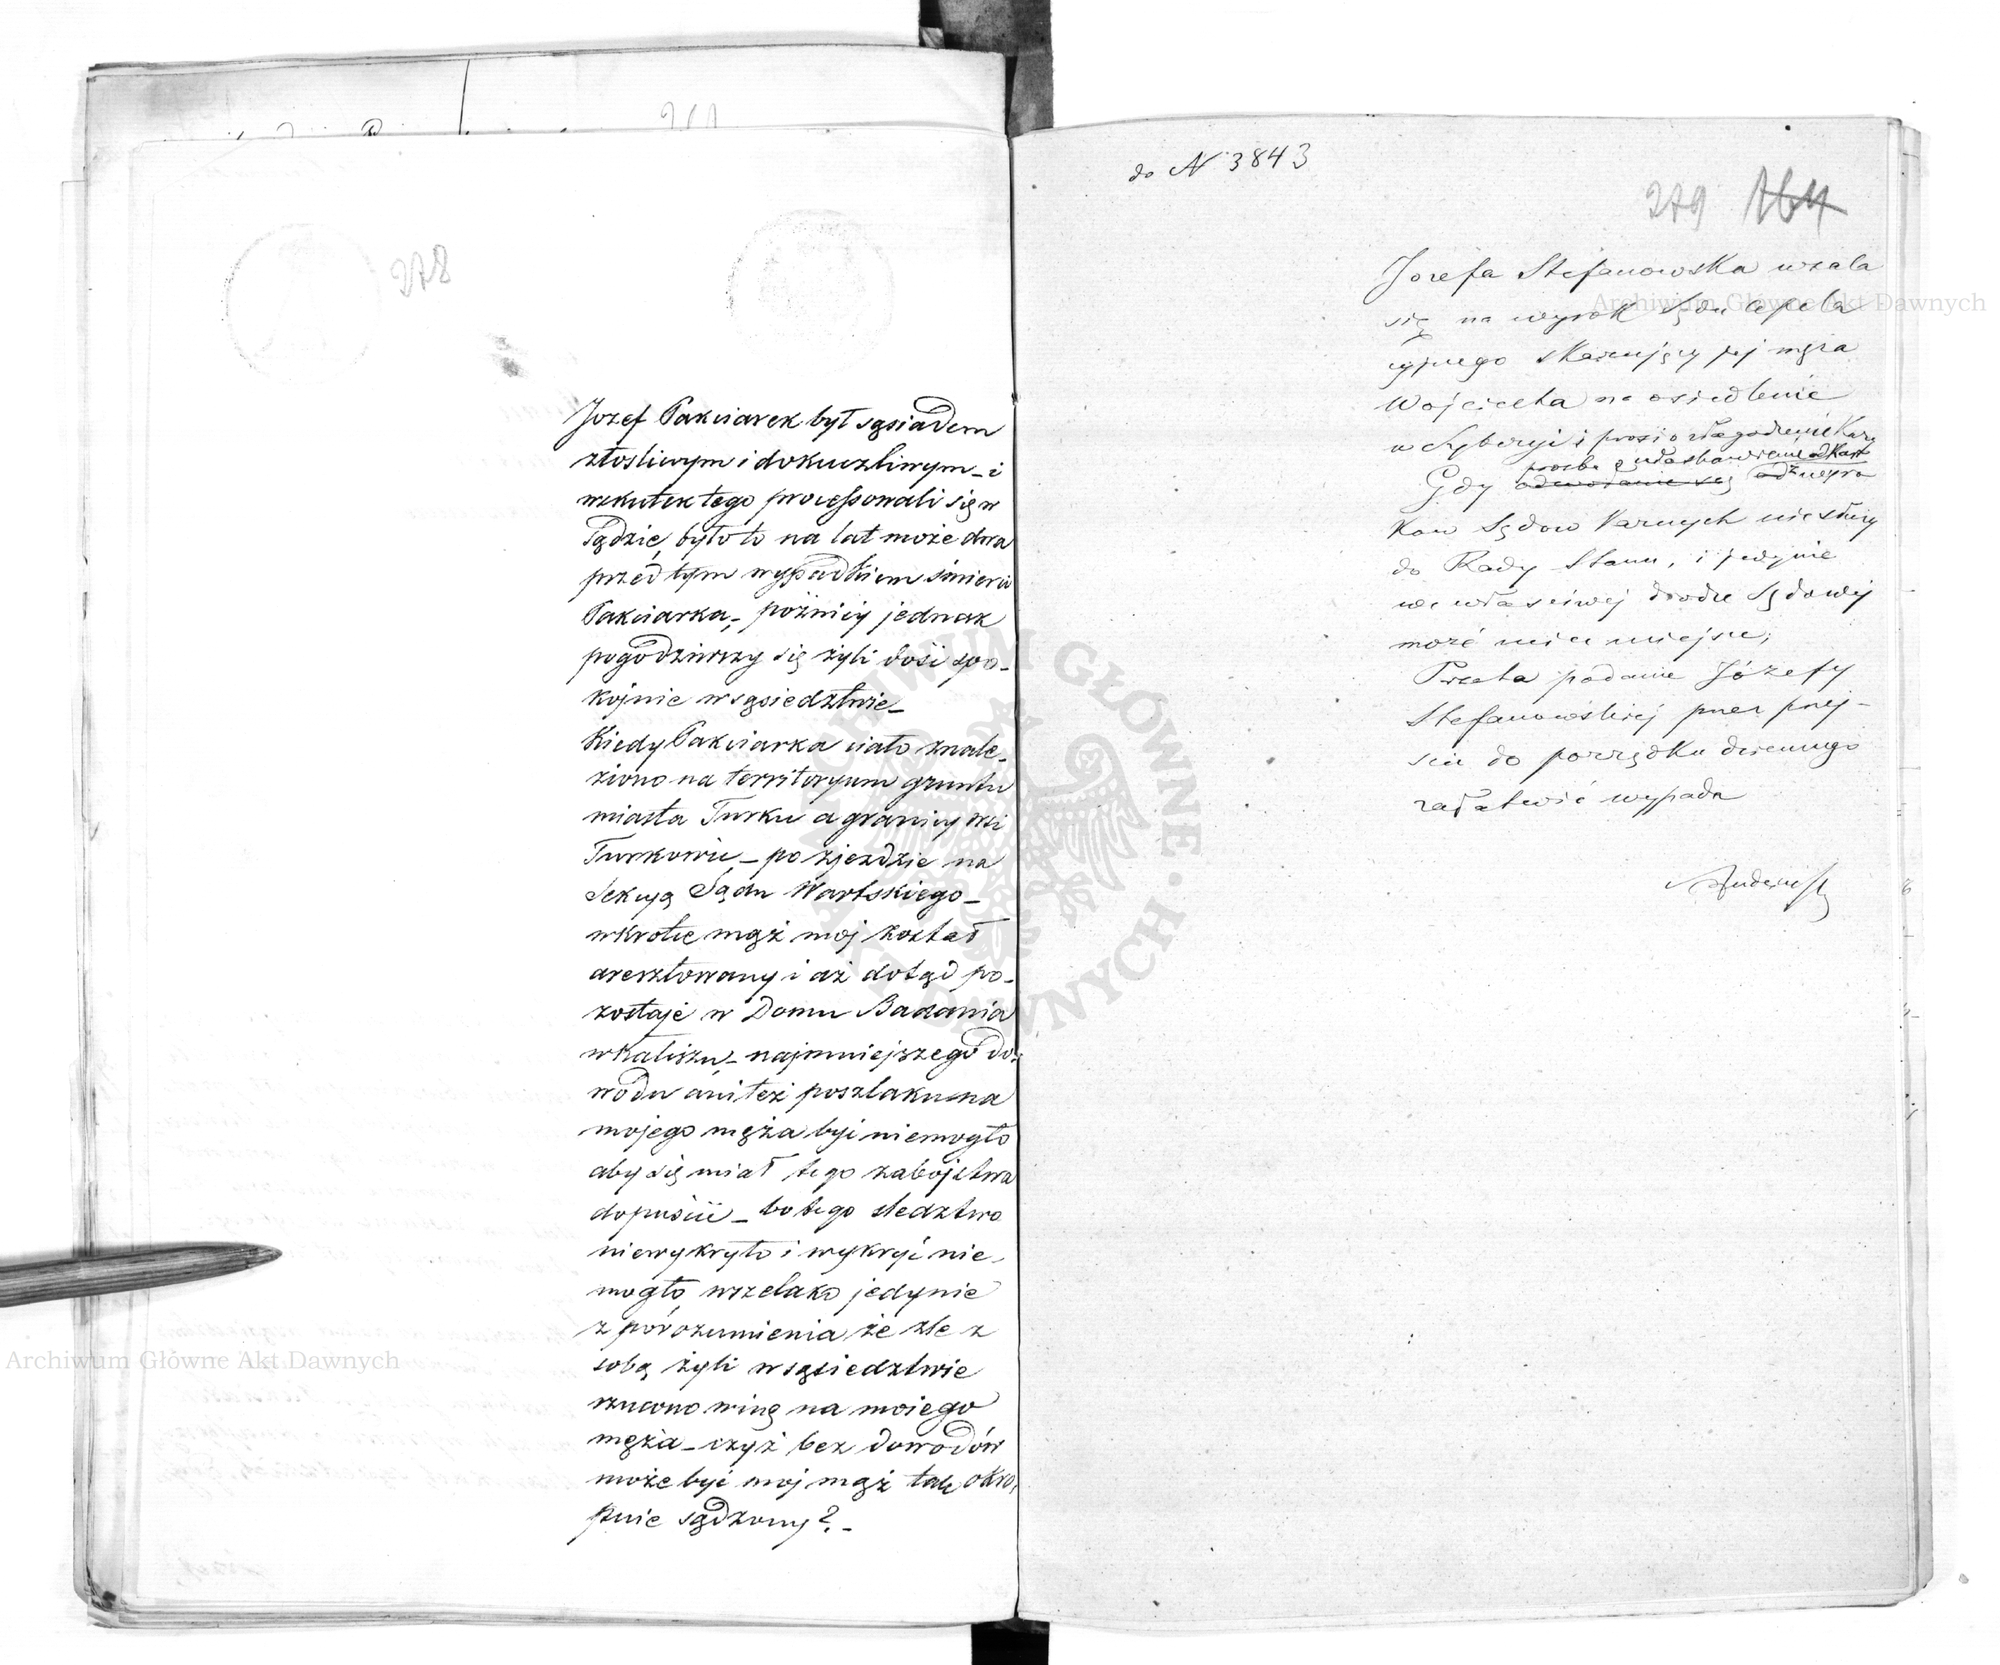 278
Jozef Pakciarek był sąsiadem
złosliwym i dokuczliwym – i
wskutek tego processowali się w
Sądzie, było to na lat może dwa
przed tym wypadkiem śmierci
Pakciarka, – późnićy jednak
pogodziwszy się żyli dość spo–
kojnie w sąsiedztwie –
Kiedy Pakciarka ciało znale–
ziono na territoryum gruntu
miasta Turku a granicy wsi
Turkowic – po zjezdzie na
Sekcyą Sądu Wartskiego –
wkrotce mąż moj został
aresztowany i aż dotąd po–
zostaje w Domu Badania
w Kaliszu, – najmniejszego do–
wodu ani też poszlaku na
mojego męża być niemogło
aby się miał tego zabojstwa
dopuścić – bo tego sledztwo
niewykryło i wykryć nie–
mogło, wszelako jedynie
z porozumienia że zle z
sobą żyli w sąsiedztwie
rzucono winę na mojego
męża – czyż bez dowodów
może być moj mąż tak okro–
pnie sądzony? –
do N 3843
279 164
Jozefa Stefanowska użala
się na wyrok Sądu Apela
cyjnego skazujący jej męża
Wojciecha na osiedlenie
w Syberyi i prosi o złagodzenie Kary
prosba o ułaskawienie od Kary
Gdy odwołanie się od wyro
kow Sądow Karnych nie służy
do Rady Stanu, i jedynie
we właściwej drodze Sądowej
może mieć miejsce;
Przeto podanie Józefy
Stefanowskiej przez przej–
scie do porządku dziennego
załatwić wypada